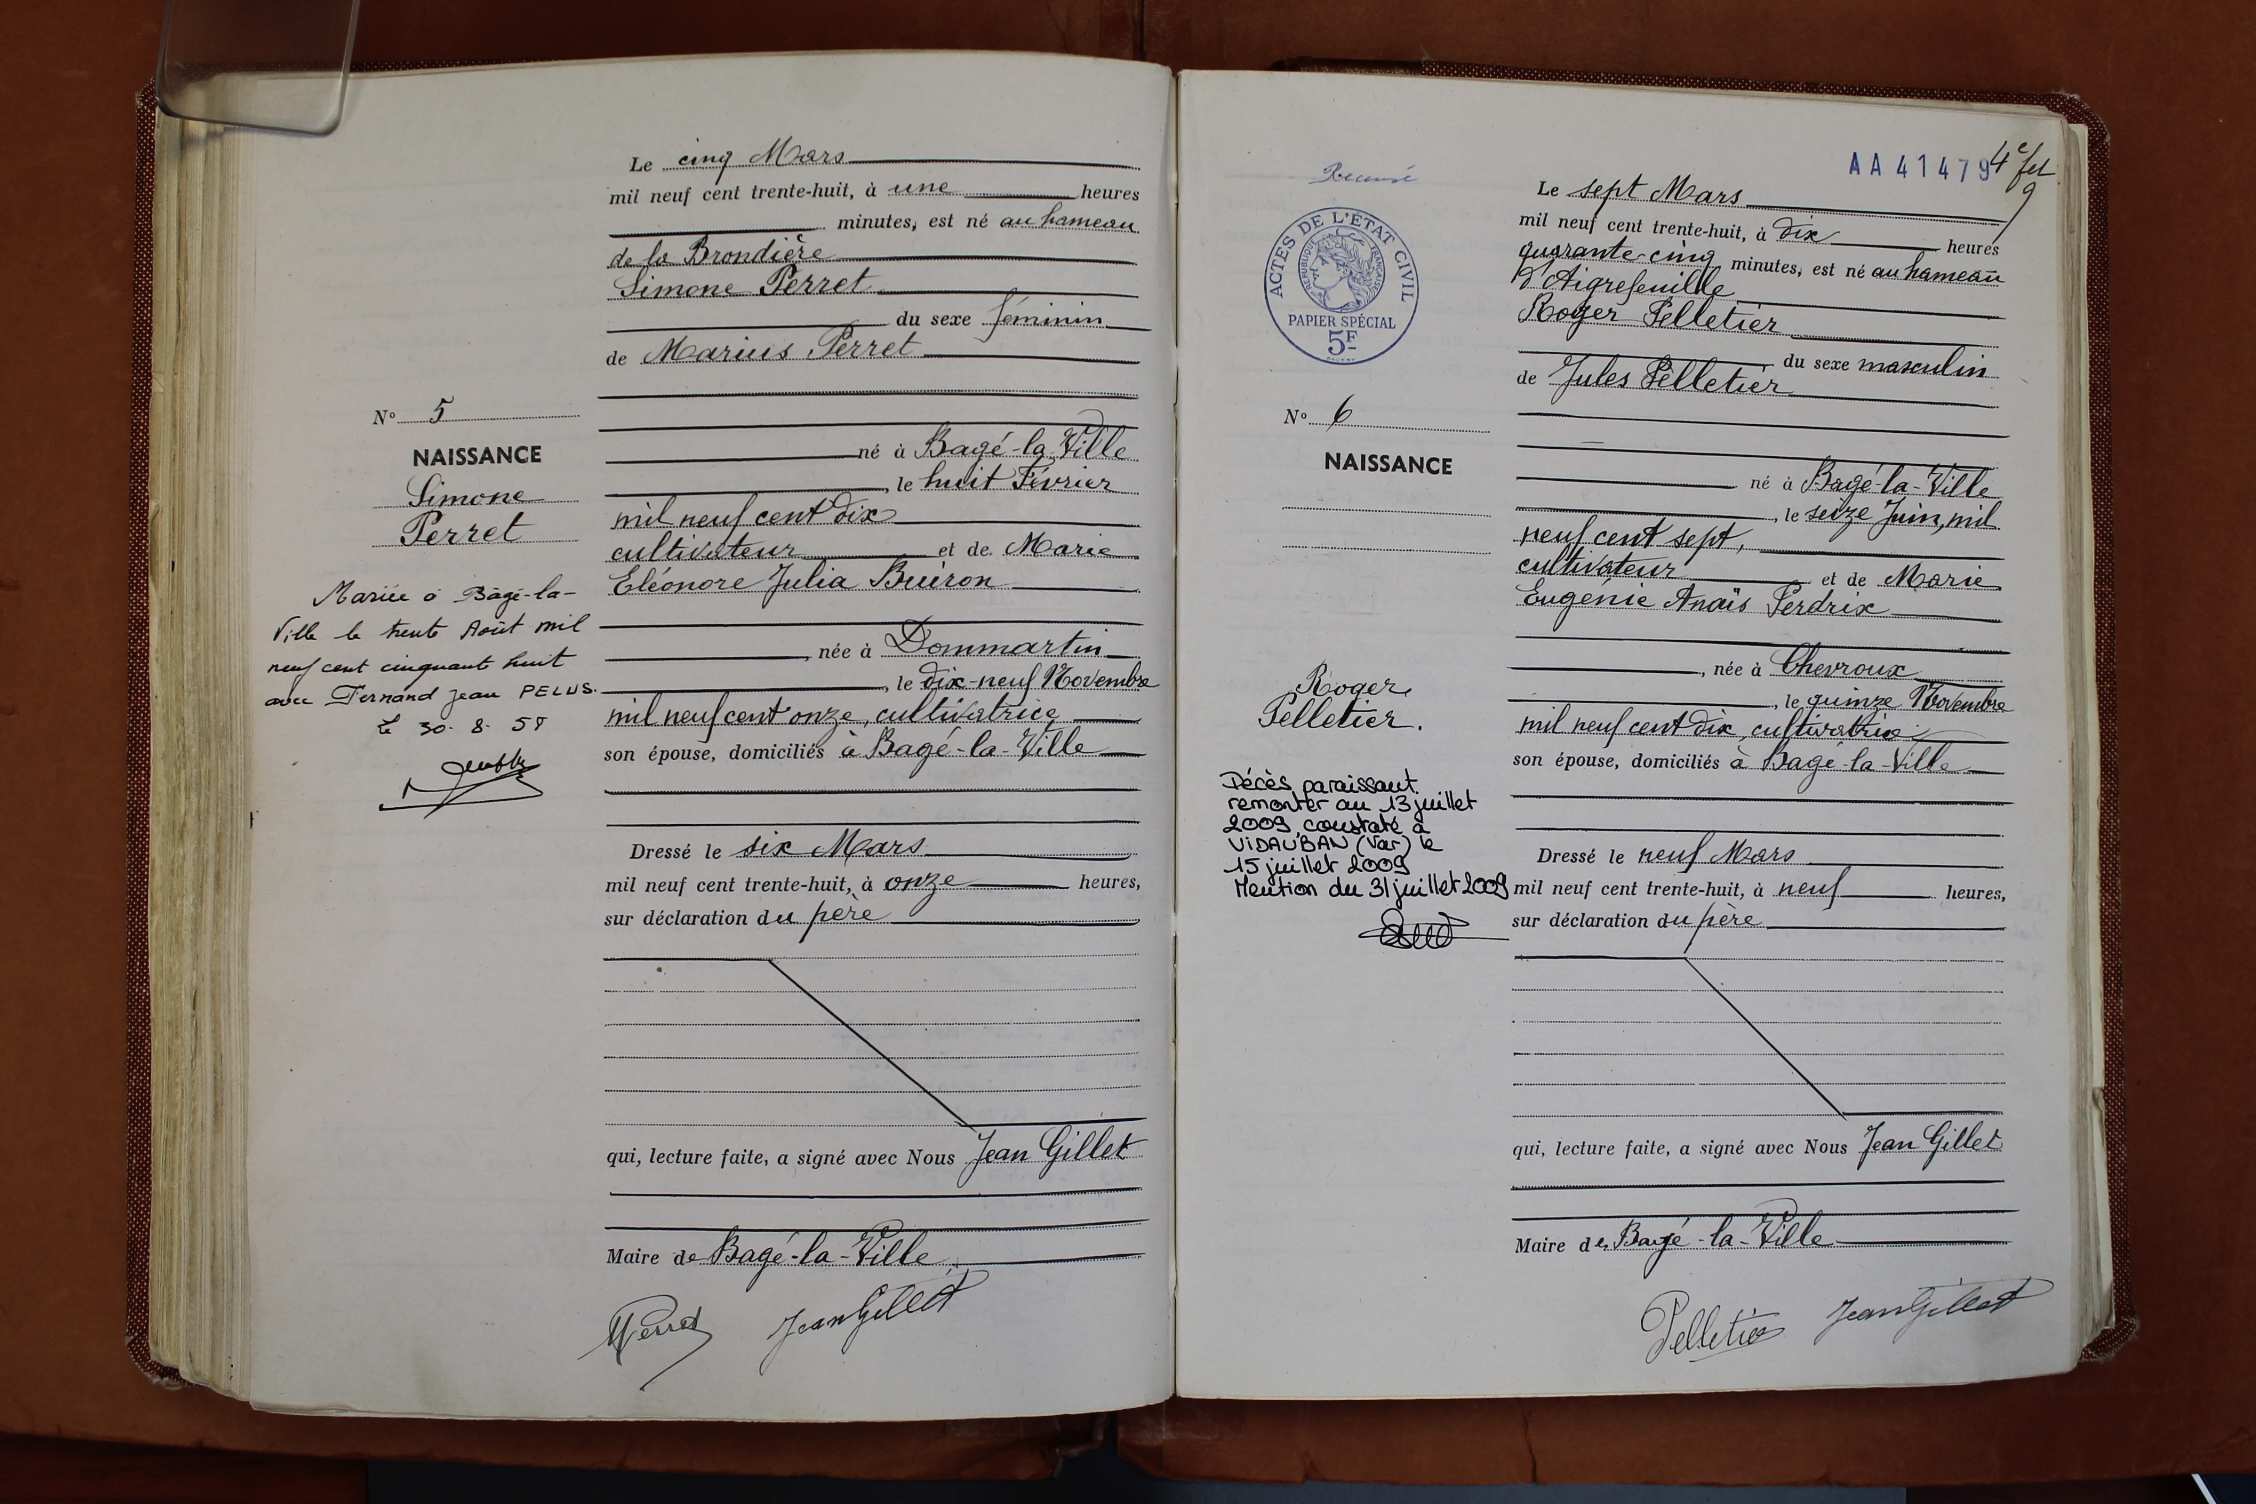 Le cinq Mars
mil neuf cent trente-huit, à une heures
minutes, est né au hameau
de la Brondière
Simone Perret
du sexe féminin
de Marius Perret
né à Bagé-la-Ville
, le huit Février
mil neuf cent dix
cultivateur et de Marie
Eléonore Julia Buiron
, née à Dommartin
, le dix-neuf Novembre
mil neuf cent onze, cultivatrice
son épouse, domiciliés à Bagé-la-Ville
Dressé le six Mars
mil neuf cent trente-huit, à onze heures,
sur déclaration du père
qui, lecture faite, a signé avec Nous Jean Gillet
Maire de Bagé-la-Ville
MPerret Jean Gillet
N° 5
NAISSANCE
Simone
Perret
Mariée à Bagé-la-
Ville le trente Août mil
neuf cent cinquante huit
avec Fernand Jean PELUS.
Le 30-8-58
AA 41479
4e fet
9
ACTES DE L'ÉTAT CIVIL
RÉPUBLIQUE FRANÇAISE
PAPIER SPÉCIAL
5F
Le sept Mars
mil neuf cent trente-huit, à dix heures
quarante-cinq minutes, est né au hameau
d'Aigrefeuille
Roger Pelletier
du sexe masculin
de Jules Pelletier
né à Bagé-la-Ville
, le seize Juin, mil
neuf cent sept,
cultivateur et de Marie
Eugénie Anaïs Perdrix
, née à Chevroux
, le quinze Novembre
mil neuf cent dix, cultivatrice
son épouse, domiciliés à Bagé-la-Ville
Dressé le neuf Mars
mil neuf cent trente-huit, à neuf heures,
sur déclaration du père
qui, lecture faite, a signé avec Nous Jean Gillet
Maire de Bagé-la-Ville
Pelletier Jean Gillet
N° 6
NAISSANCE
Roger
Pelletier.
Décès paraissant
remonter au 13 juillet
2009, constaté à
VIDAUBAN (Var) le
15 juillet 2009
Mention du 31 juillet 2009